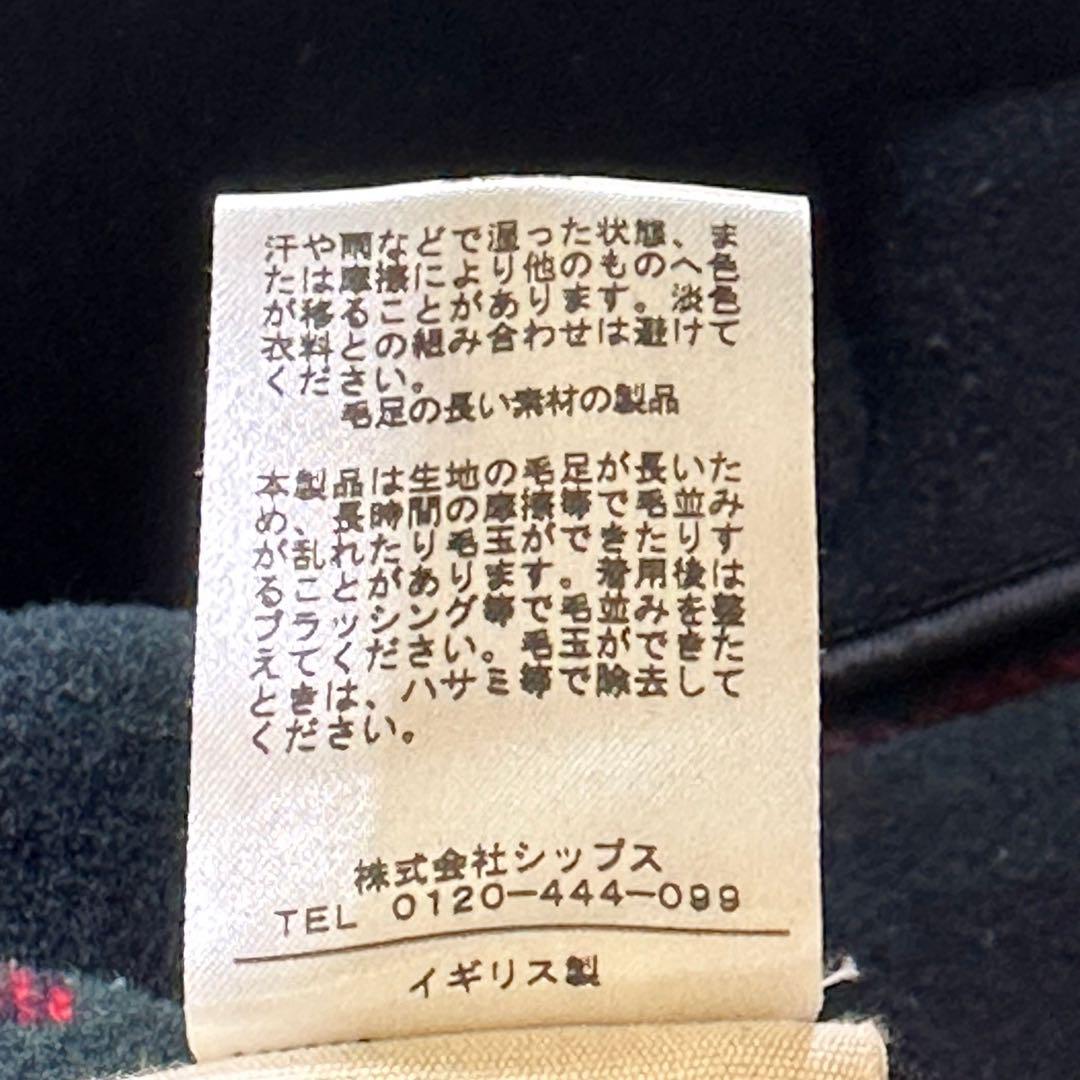 汗や雨などで湿った状態、ま
たは摩擦により他のものへ色
が移ることがあります。淡色
衣料との組み合わせは避けて
ください。
毛足の長い素材の製品
本製品は生地の毛足が長いた
め、長時間の摩擦等で毛並み
が乱れたり毛玉ができたりす
ることがあります。着用後は
ブラッシング等で毛並みを整
えてください。毛玉ができた
ときは、ハサミ等で除去して
ください。
株式会社シップス
TEL 0120-444-099
イギリス製